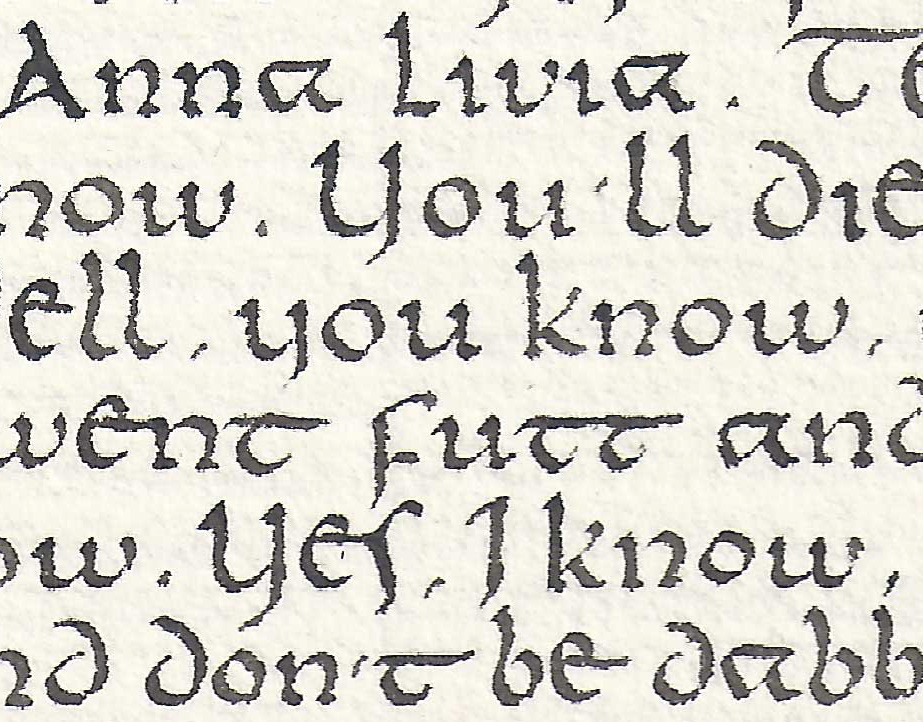 Anna Livia. Te
now. You'll die
ell, you know,
went futt and
ow. Yes, I know,
nd don't be dabb